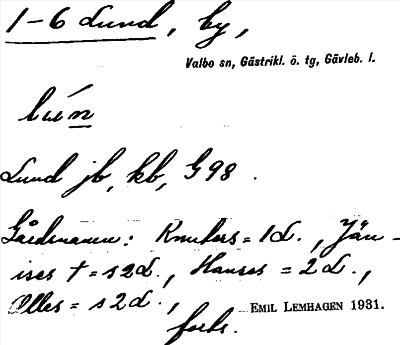 1-6 Lund, by,
Valbo sn, Gästrikl. ö. tg, Gävleb. l.
lún
Lund jb, kb, G98.
Gårdsnamn: Knuters = 1 L., Jän-
ises † = s 2 L., Hanses = 2 L.,
Olles = s 2 L.,
EMIL LEMHAGEN 1931.
forts.